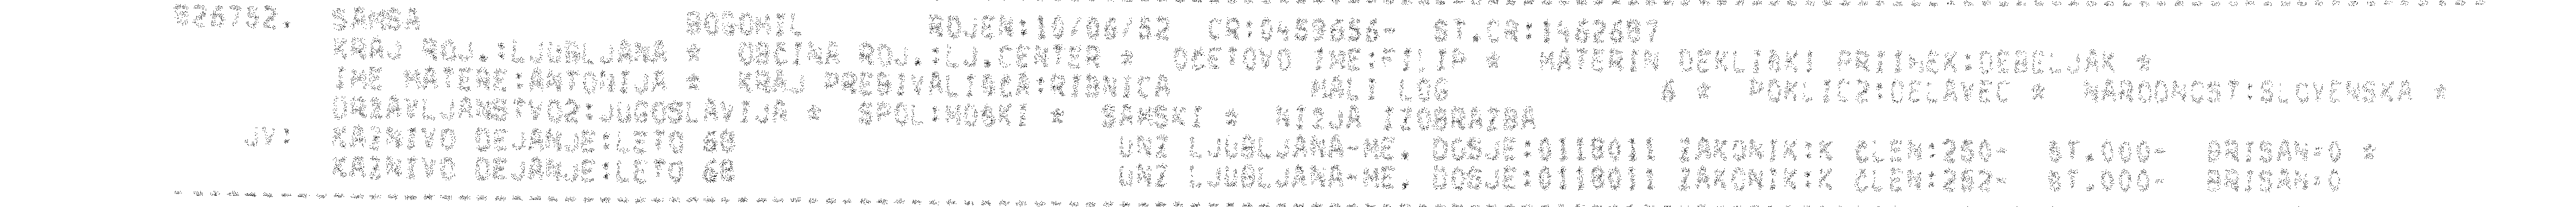 826752. SAMSA BOGOMIL ROJEN:10/06/52 CR:0459656- ST.CR:1462687
KRAJ ROJ.:LJUBLJANA * OBCINA ROJ.:LJ.CENTER * OCETOVO IME:FILIP * MATERIN DEKLISKI PRIIMEK:DEBELJAK *
IME MATERE:ANTONIJA * KRAJ PREBIVALISCA:RIBNICA MALI LOG 6 * POKLIC2:DELAVEC * NARODNOST:SLOVENSKA *
DRZAVLJANSTVO2:JUGOSLAVIJA * SPOL:MOSKI * SAMSKI * NIZJA IZOBRAZBA
JV: KAZNIVO DEJANJE:LETO 68 UNZ LJUBLJANA-ME. DOSJE:0118011 ZAKONIK:K CLEN:250- ST.000- BRISAN=0 *
KAZNIVO DEJANJE:LETO 68 UNZ LJUBLJANA-ME. DOSJE:0118011 ZAKONIK:K CLEN:252- ST.000- BRISAN=0